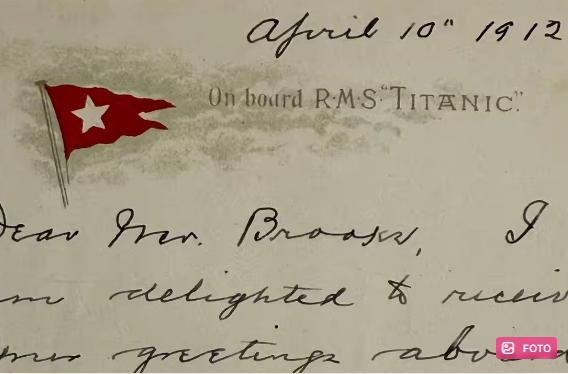 April 10" 1912
On board R·M·S "TITANIC."
Dear Mr. Brooks, I
am delighted to receiv
your greetings aboa
FOTO